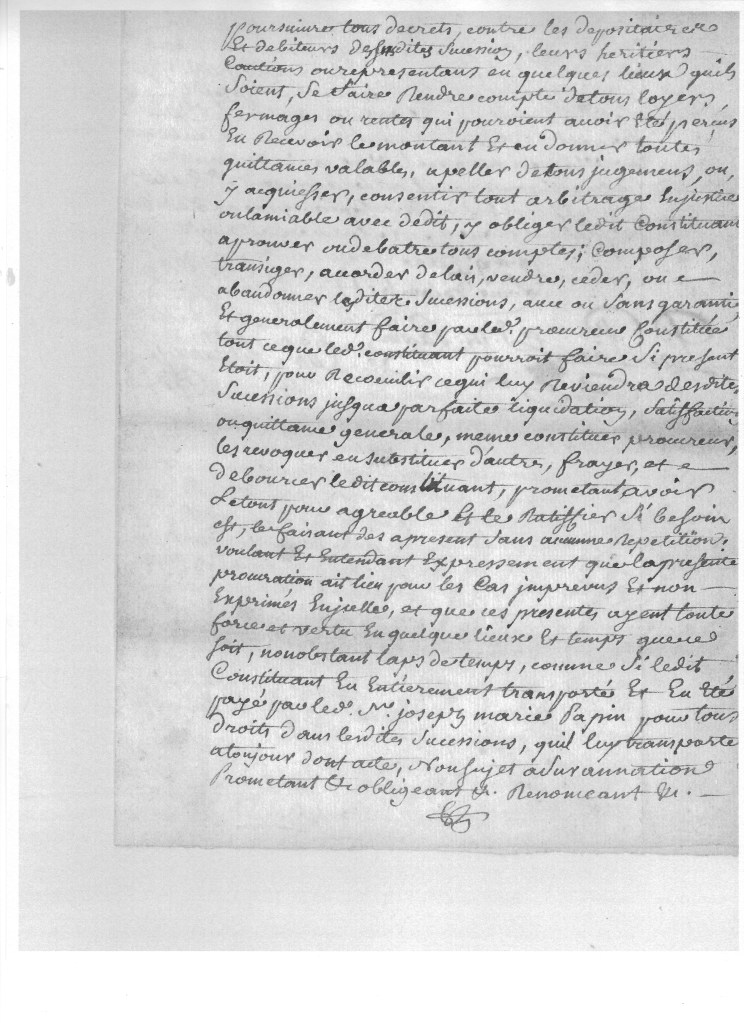 poursuivre tous decrets, contre les depositaires
Et debiteurs desusdites Sucession, leurs heritiers
Cautions ou representans en quelques lieux quils
Soient, Se faire Rendre compte de tous loyers,
fermages ou rentes qui pouroient avoir Eté perçus
En Recevoir le montant Et en donner toutes
quittances valables, apeller de tous jugemens, ou,
y acquiesser, consentir tout arbitrage En justice
ou lamiable avec dedit, y obliger ledit Constituant
aprouver ou debatre tous comptes; Composer,
transiger, accorder delais, vendre, ceder, ou
abandonner lesdites Sucessions, avec ou Sans garantie
Et generalement faire par led. procureur Constitué
tout ce que led. constituant pourroit faire Si present
Etoit, pour Recoeuilir ce qui luy Reviendra desdites
Sucessions jusqua parfaite liquidation, Satisfaction
ou quittance generale, meme constituer procureur,
les revoquer en substituer d'autre, frayer, et
debourcer ledit constituant, prometant avoir
Letout pour agreable Et le Ratiffier Si besoin
est, le faisant des apresent Sans aucunne Repetition,
voulant Et Entendant Expressement que la presente
procuration ait lieu pour les Cas imprevus Et non
Exprimés Enjcelle, et que ces presentes ayent toute
force et vertu En quelque lieux Et temps que ce
soit, nonobstant laps de temps, comme Si ledit
Constituant En Entierement transporté Et En Eté
payé par led. Sr. joseph marie Papin pour tous
Droits dans lesdites Sucessions, quil luy transporte
atoujour dont acte, Non sujet a Surannation
Prometant &c obligeant &c. Renonceant &c.